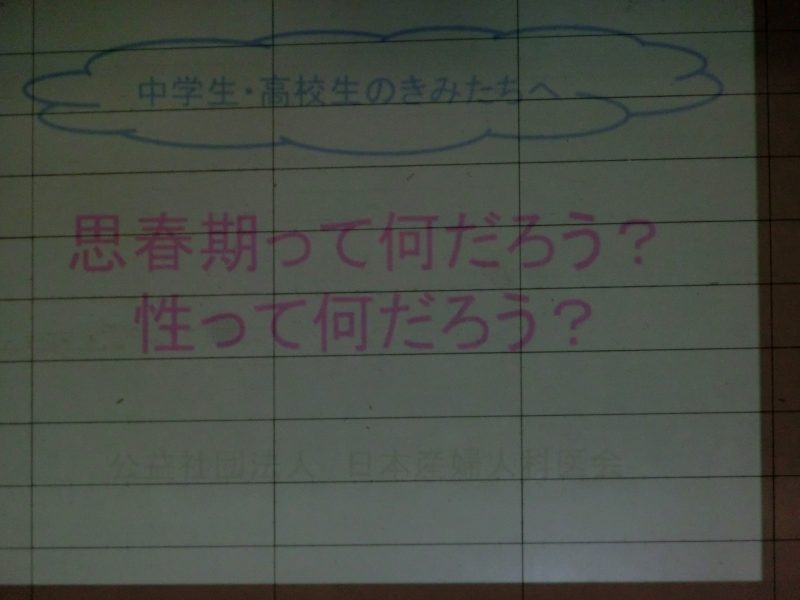 中学生・高校生のきみたちへ
思春期って何だろう？
性って何だろう？
公益社団法人 日本産婦人科医会